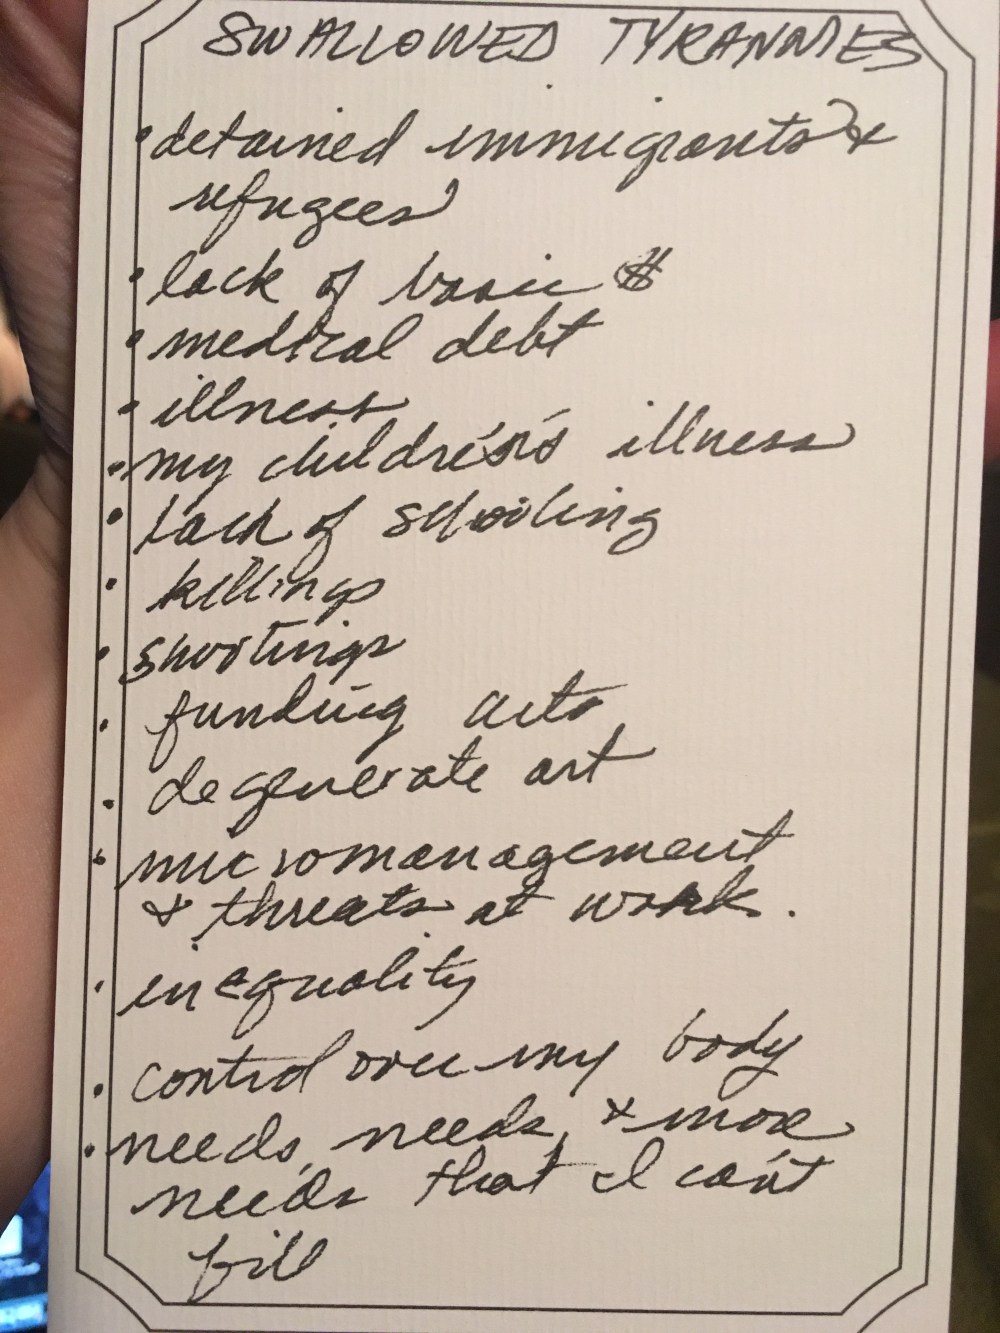 SWALLOWED TYRANNIES
• detained immigrants &
refugees
• lack of basic $
• medical debt
• illness
• my children's illness
• lack of schooling
• killings
• shootings
• funding arts
• degenerate art
• micromanagement
& threats at work.
• inequality
• control over my body
• needs, needs, & more
needs that I can't
fill